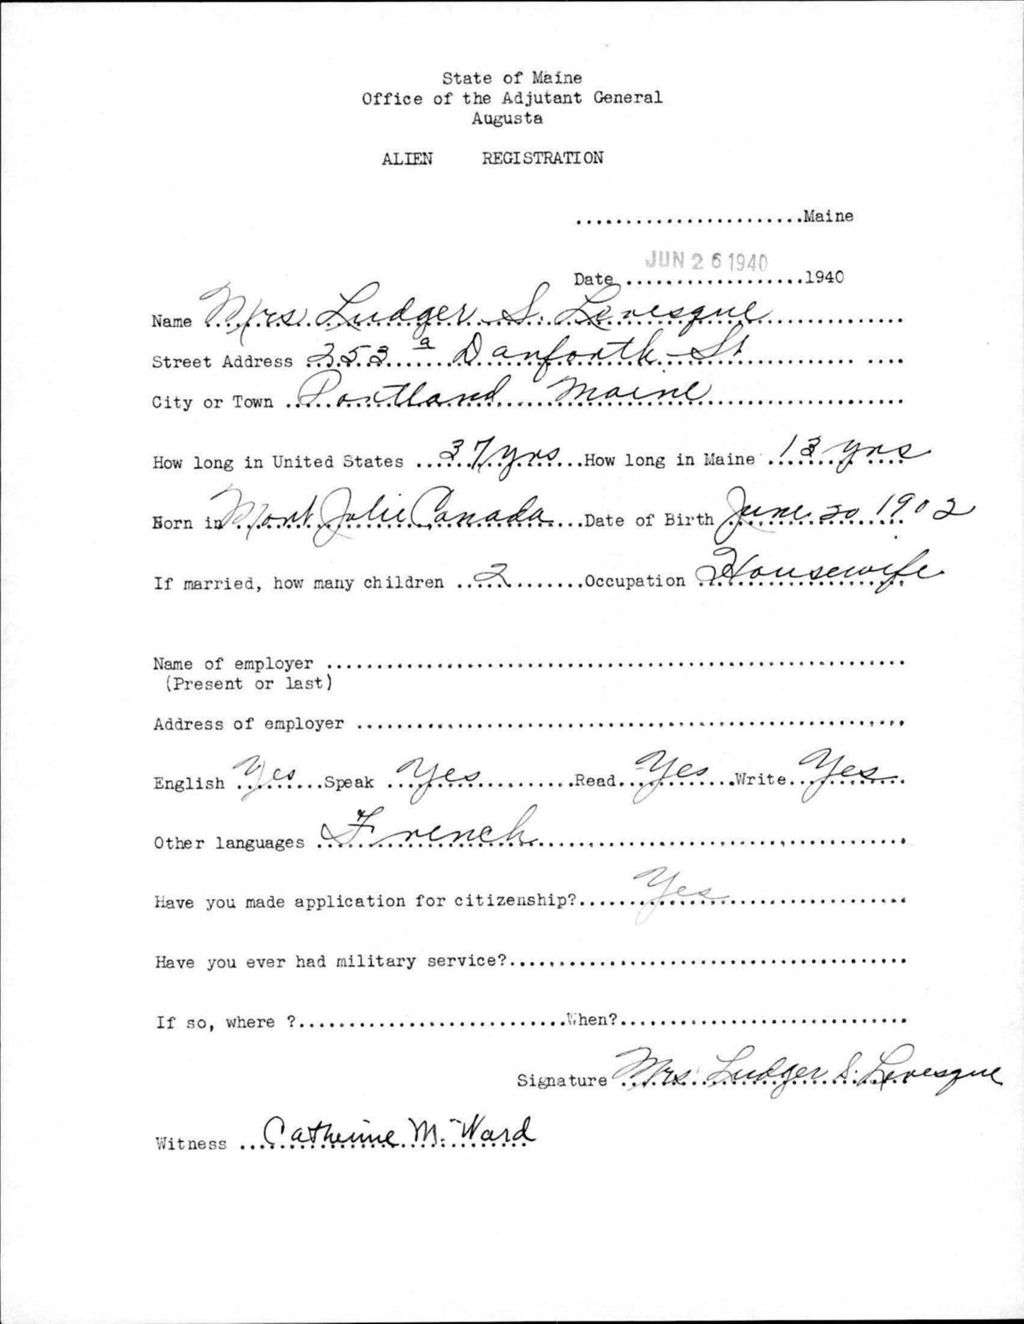 State of Maine
Office of the Adjutant General
Augusta
ALIEN REGISTRATION
.......................Maine
JUN 26 1940
Date ..................1940
Name Mrs. Ludger S. Levesque
Street Address 253 a Danforth - St
City or Town Portland Maine
How long in United States 37 yrs How long in Maine 13 yrs
Born in Mont Jolie Canada Date of Birth June 20 1902
If married, how many children 2 Occupation Housewife
Name of employer
(Present or last)
Address of employer
English Yes Speak Yes Read Yes Write Yes
Other languages French
Have you made application for citizenship? Yes
Have you ever had military service?
If so, where ? When?
Signature Mrs. Ludger S. Levesque
Witness Catherine M. Ward